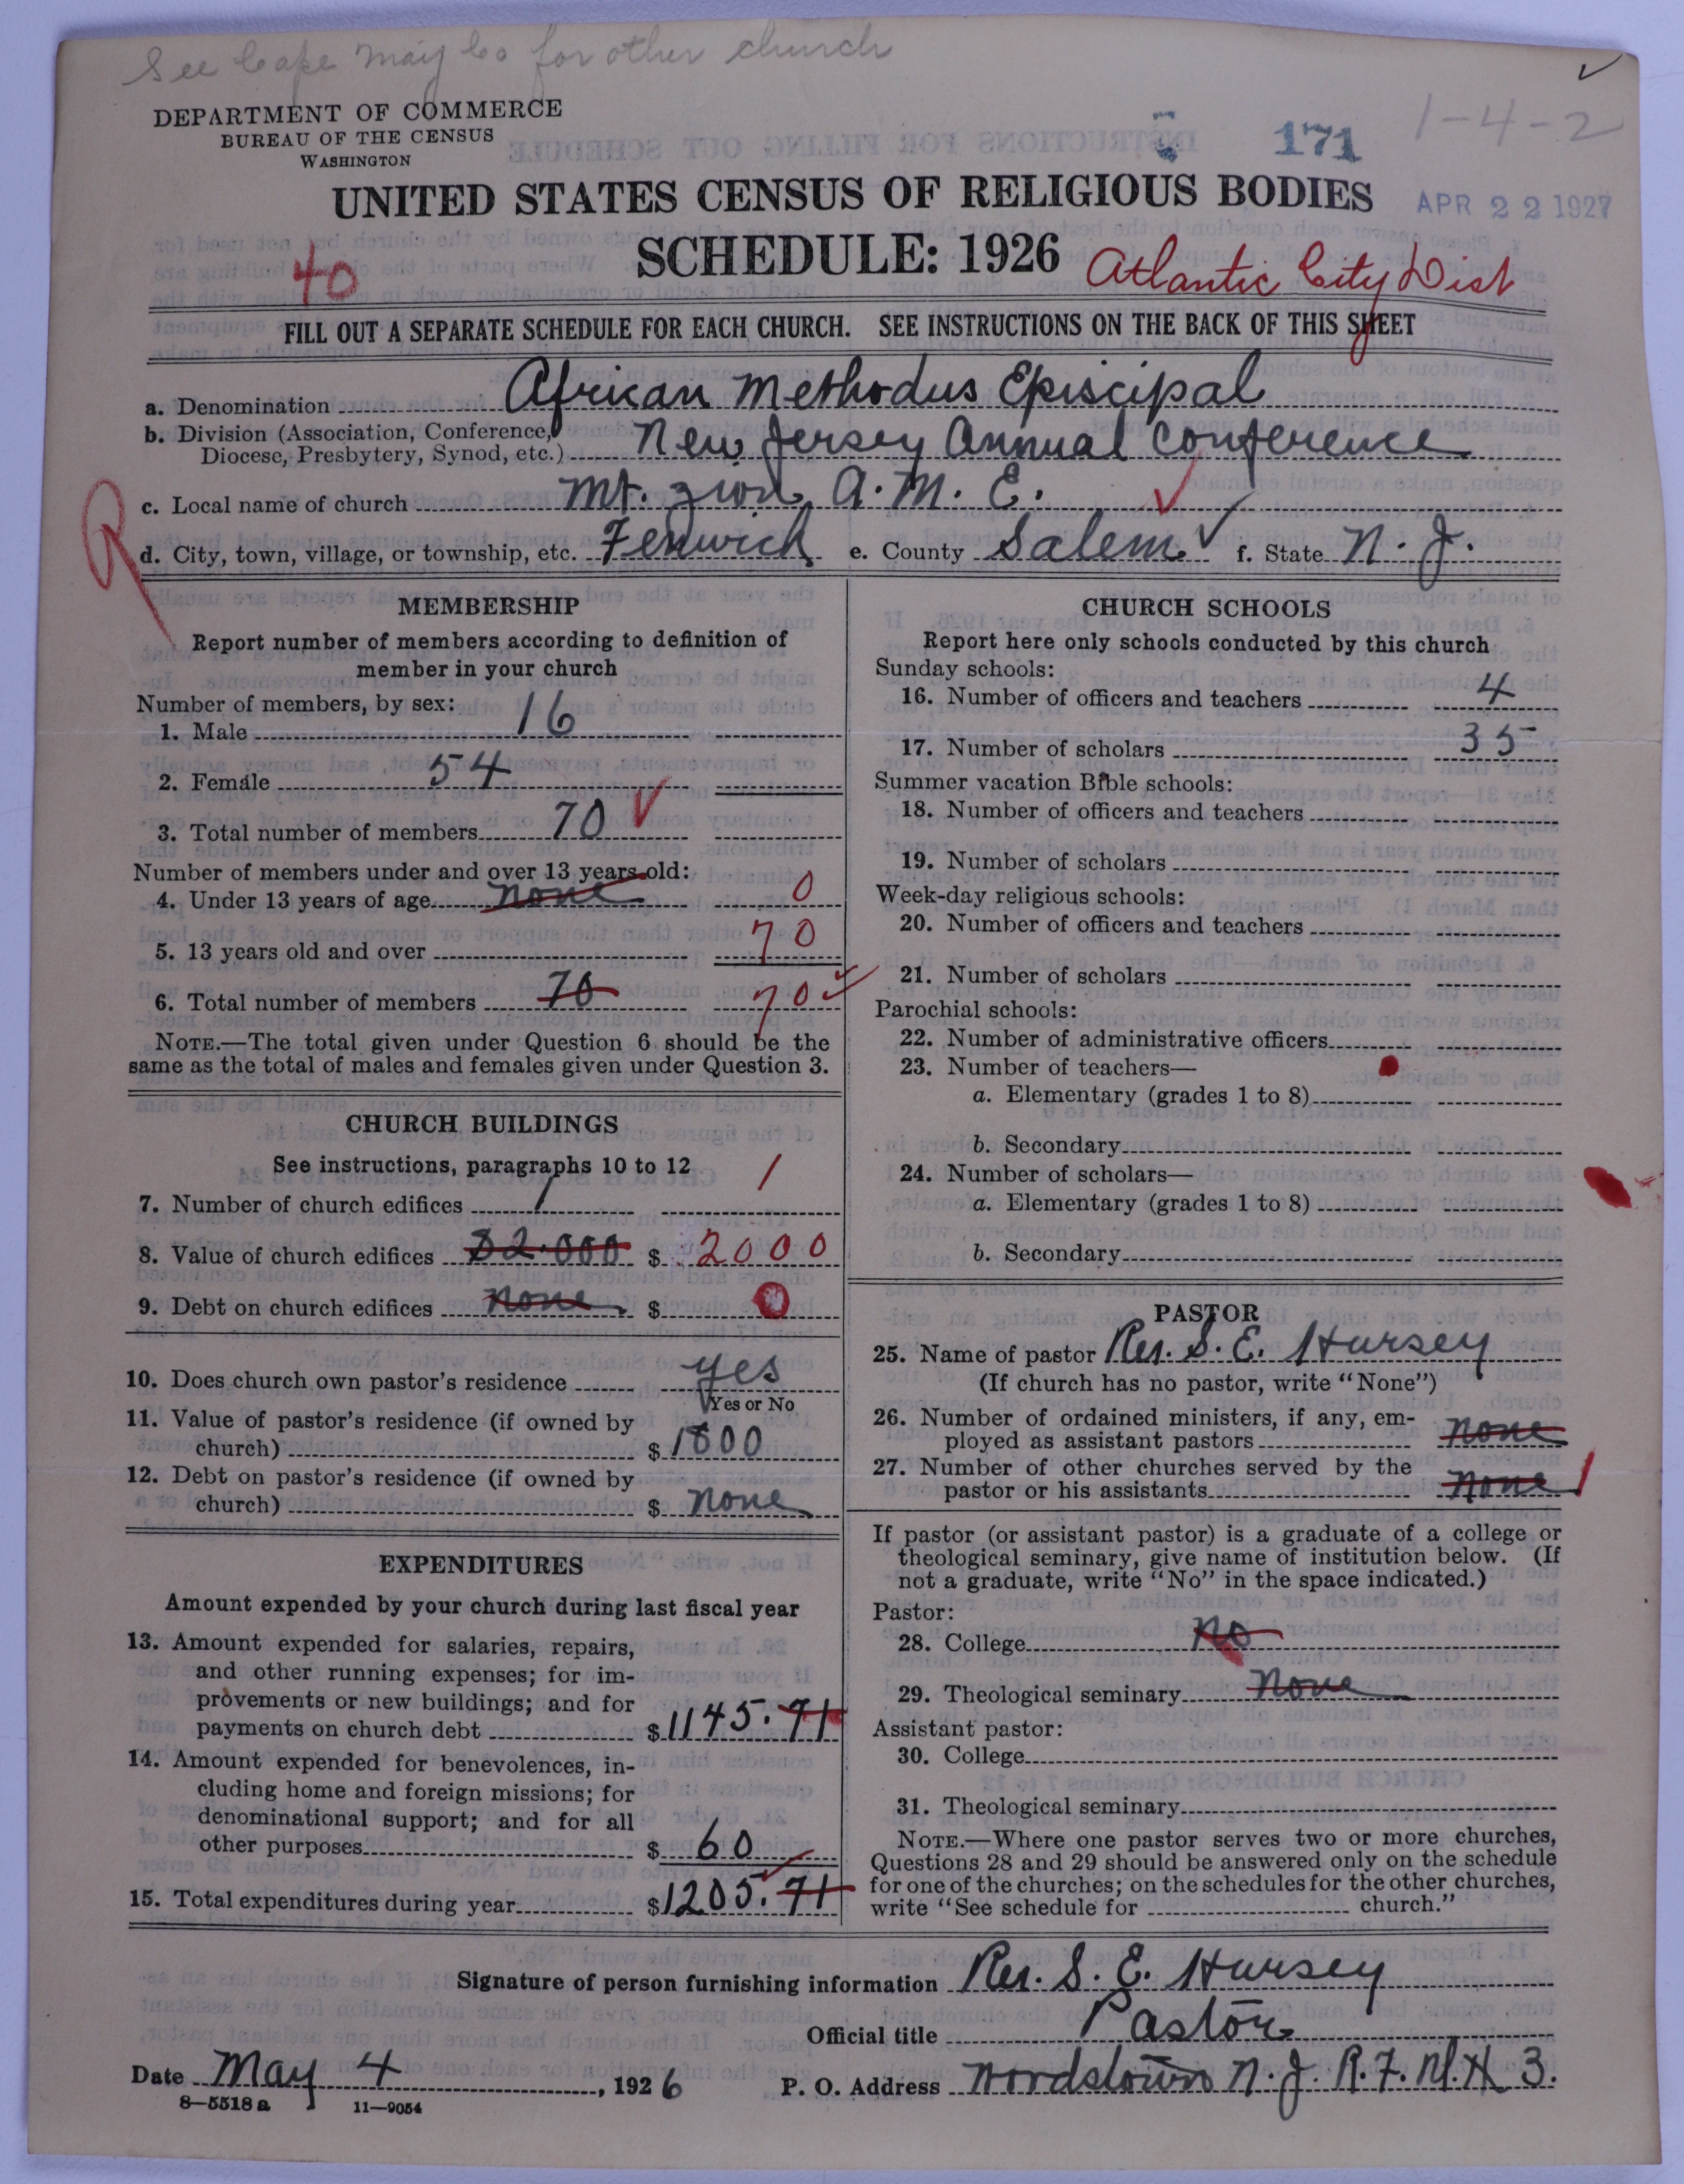 See Cape May Co for other church
✓
DEPARTMENT OF COMMERCE
BUREAU OF THE CENSUS
WASHINGTON
171
1-4-2
UNITED STATES CENSUS OF RELIGIOUS BODIES
APR 22 1927
SCHEDULE: 1926
40
Atlantic City Dist
FILL OUT A SEPARATE SCHEDULE FOR EACH CHURCH. SEE INSTRUCTIONS ON THE BACK OF THIS SHEET
a. Denomination African Methodus Episcipal
b. Division (Association, Conference, Diocese, Presbytery, Synod, etc.) New Jersey Annual Conference
c. Local name of church Mt. Zion A. M. E.
R
d. City, town, village, or township, etc. Fenwick e. County Salem f. State N. J.
MEMBERSHIP
Report number of members according to definition of
member in your church
Number of members, by sex:
1. Male 16
2. Female 54
3. Total number of members 70
Number of members under and over 13 years old:
4. Under 13 years of age none 0
5. 13 years old and over 70
6. Total number of members 70 70
NOTE.—The total given under Question 6 should be the
same as the total of males and females given under Question 3.
CHURCH BUILDINGS
See instructions, paragraphs 10 to 12
7. Number of church edifices 1 1
8. Value of church edifices $2.000 $ 2000
9. Debt on church edifices none $ 0
10. Does church own pastor's residence yes
Yes or No
11. Value of pastor's residence (if owned by
church) $ 1800
12. Debt on pastor's residence (if owned by
church) $ none
EXPENDITURES
Amount expended by your church during last fiscal year
13. Amount expended for salaries, repairs,
and other running expenses; for im-
provements or new buildings; and for
payments on church debt $ 1145.71
14. Amount expended for benevolences, in-
cluding home and foreign missions; for
denominational support; and for all
other purposes $ 60
15. Total expenditures during year $ 1205.71
CHURCH SCHOOLS
Report here only schools conducted by this church
Sunday schools:
16. Number of officers and teachers 4
17. Number of scholars 35
Summer vacation Bible schools:
18. Number of officers and teachers
19. Number of scholars
Week-day religious schools:
20. Number of officers and teachers
21. Number of scholars
Parochial schools:
22. Number of administrative officers
23. Number of teachers—
a. Elementary (grades 1 to 8)
b. Secondary
24. Number of scholars—
a. Elementary (grades 1 to 8)
b. Secondary
PASTOR
25. Name of pastor Rev. S. E. Hursey
(If church has no pastor, write "None")
26. Number of ordained ministers, if any, em-
ployed as assistant pastors none
27. Number of other churches served by the
pastor or his assistants none 1
If pastor (or assistant pastor) is a graduate of a college or
theological seminary, give name of institution below. (If
not a graduate, write "No" in the space indicated.)
Pastor:
28. College No
29. Theological seminary None
Assistant pastor:
30. College
31. Theological seminary
NOTE.—Where one pastor serves two or more churches,
Questions 28 and 29 should be answered only on the schedule
for one of the churches; on the schedules for the other churches,
write "See schedule for church."
Signature of person furnishing information Rev. S. E. Hursey
Official title Pastor
Date May 4, 1926 P. O. Address Wordstown N. J. R. F. 3.
8-5518 a 11-9054